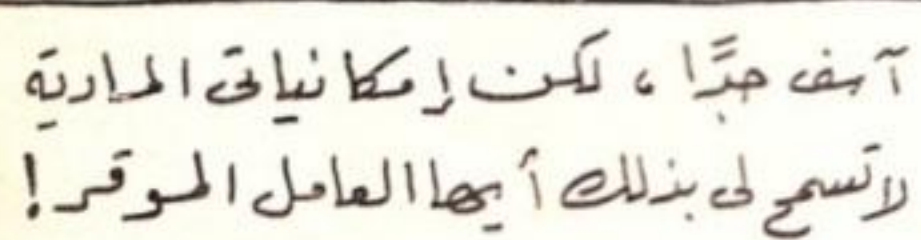 آسف جدًّا، لكن إمكانياتى المادية
لا تسمح لى بذلك أيها العامل الموقر!